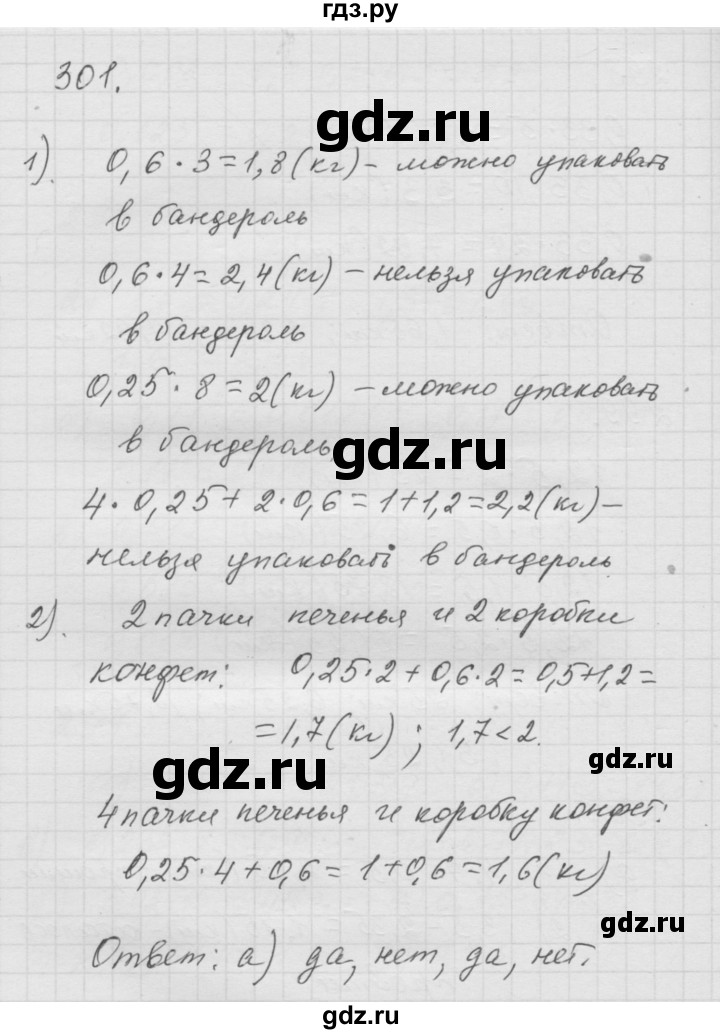 гдз.ру
301.
gdz.ru
1). 0,6·3=1,8(кг)– можно упаковать
в бандероль
0,6·4=2,4(кг) – нельзя упаковать
в бандероль
0,25·8=2(кг) – можно упаковать
в бандероль
gdz.ru
4·0,25+2·0,6=1+1,2=2,2(кг)–
нельзя упаковать в бандероль
2). 2 пачки печенья и 2 коробки
конфет: 0,25·2+0,6·2=0,5+1,2=
=1,7(кг) ; 1,7<2.
gdz.ru
gdz.ru
4 пачки печенья и коробку конфет:
0,25·4+0,6=1+0,6=1,6(кг)
gdz.ru
Ответ: а) да, нет, да, нет.
gdz.ru